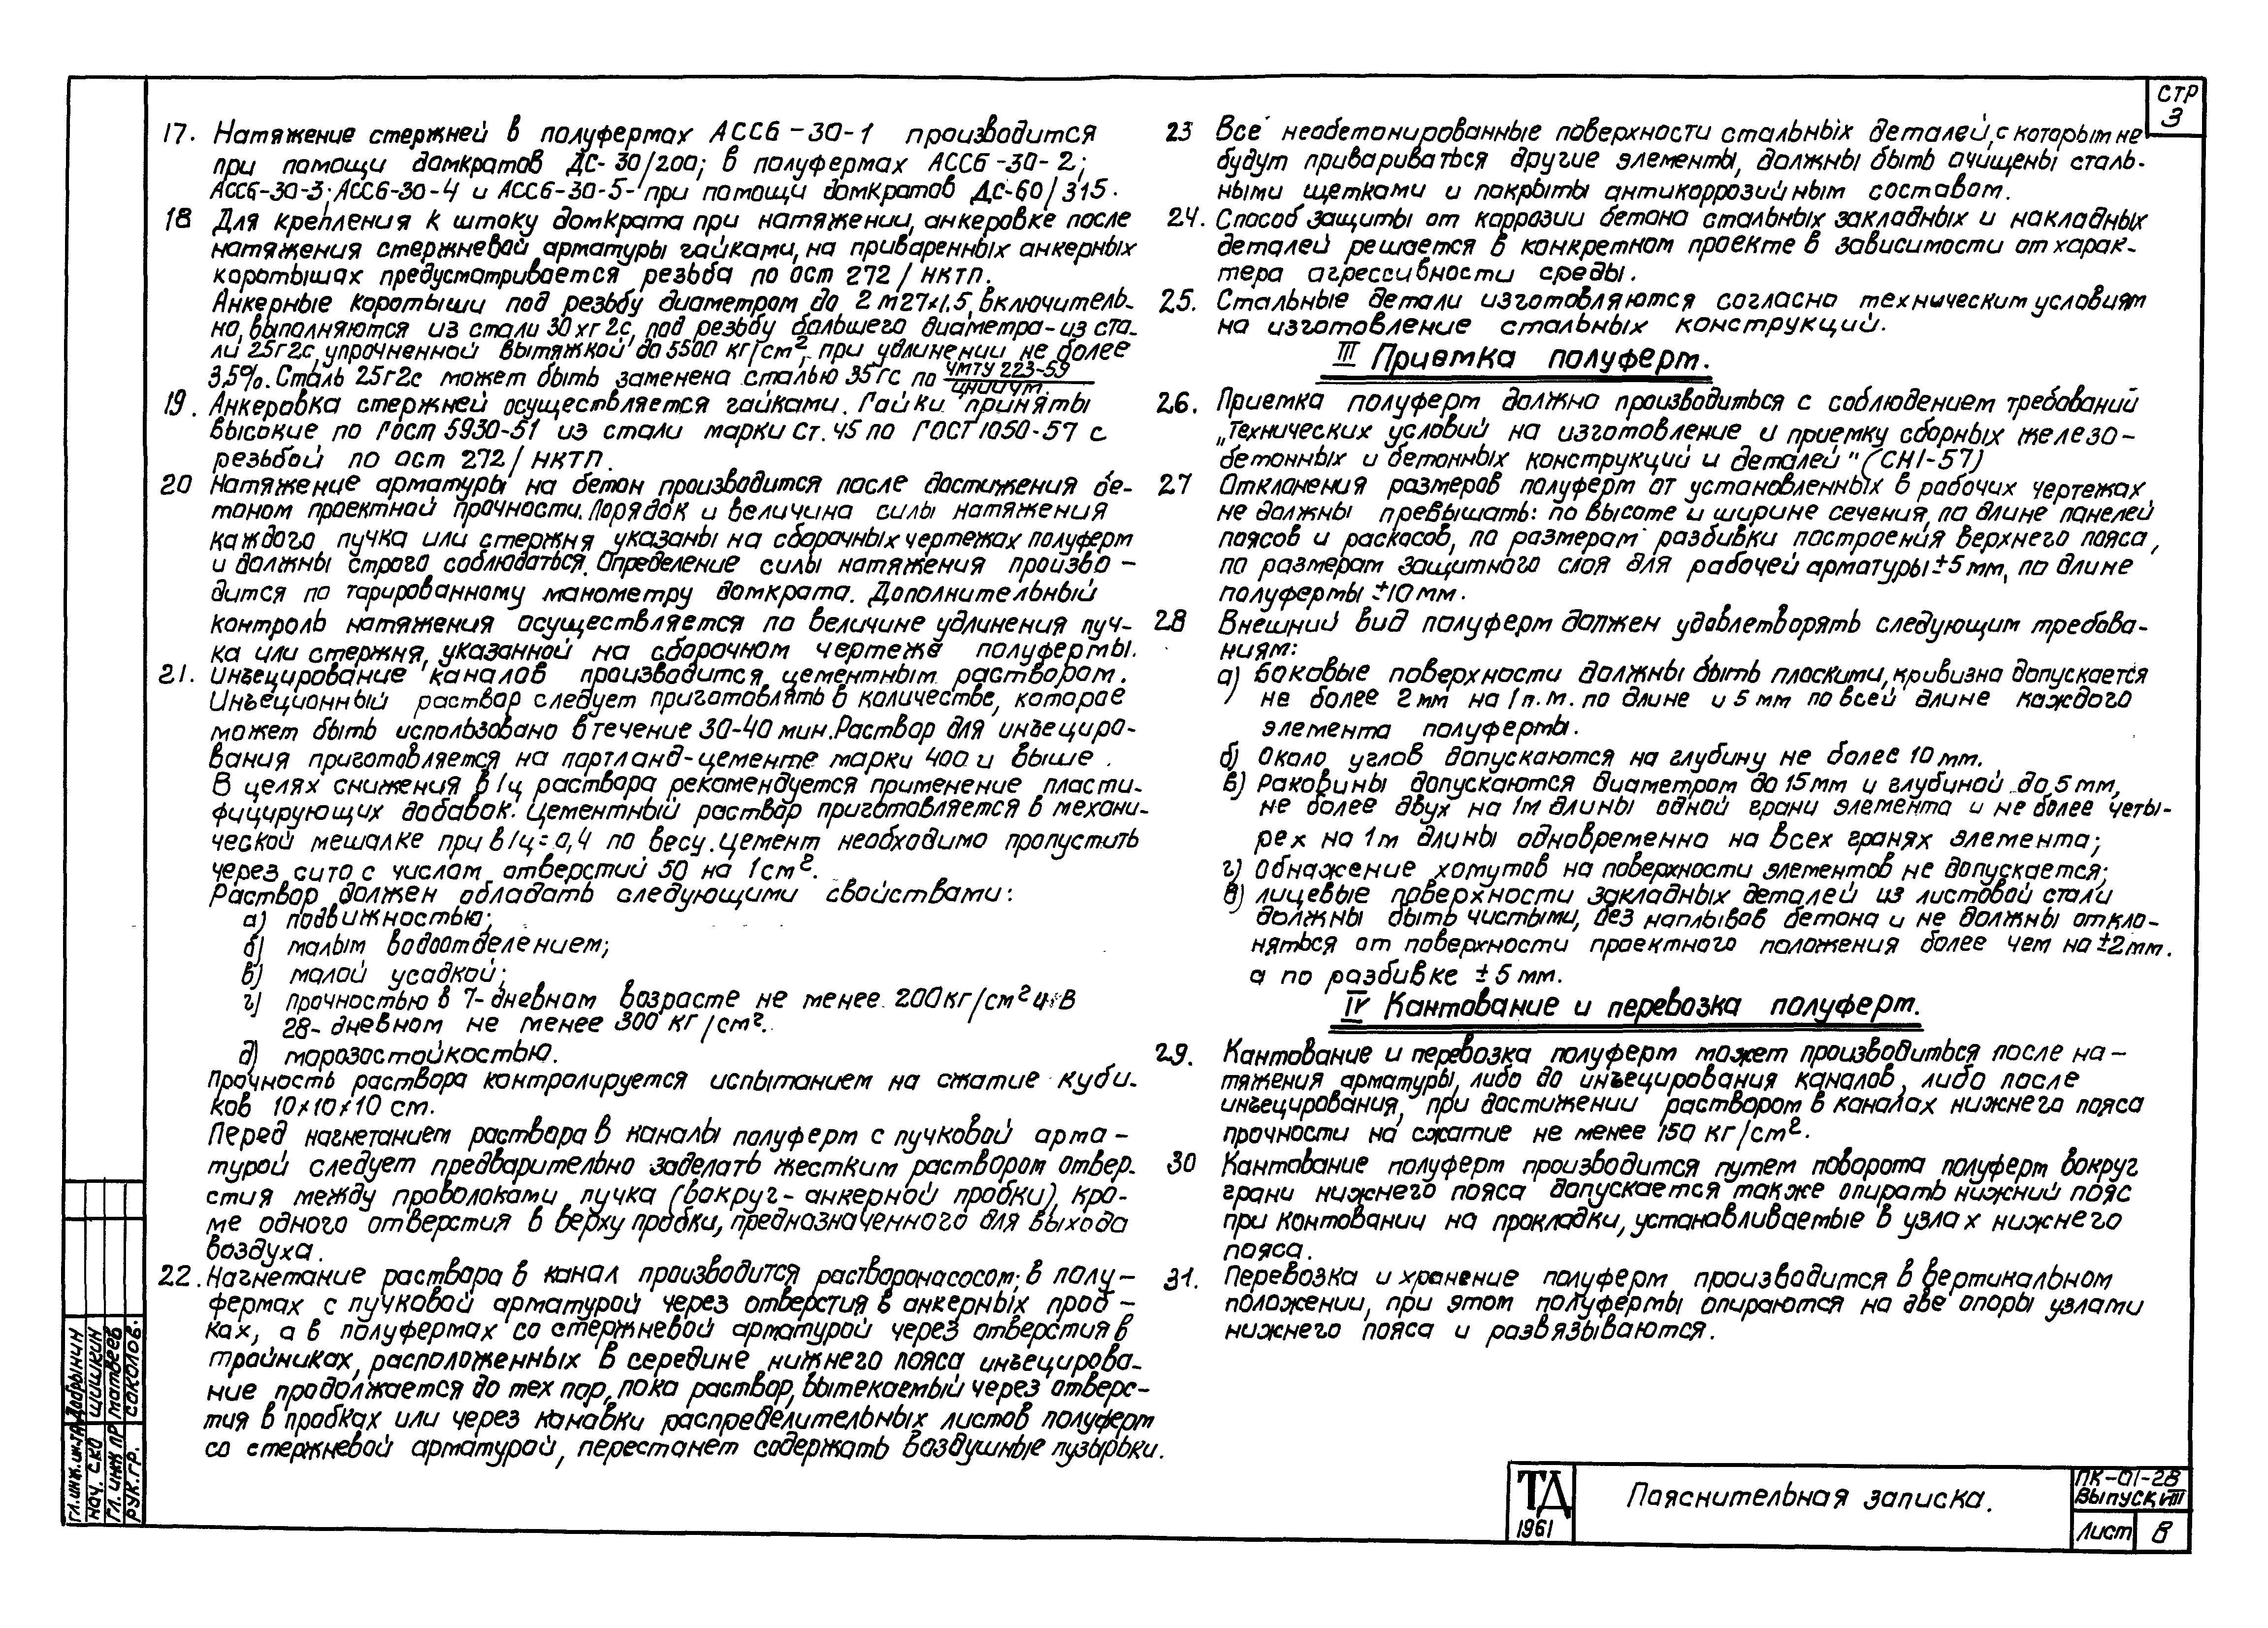 СТР
3
17. Натяжение стержней в полуфермах АСС6-30-1 производится
при помощи домкратов ДС-30/200; в полуфермах АСС6-30-2;
АСС6-30-3; АСС6-30-4 и АСС6-30-5- при помощи домкратов ДС-60/315.
18 Для крепления к штоку домкрата при натяжении, анкеровке после
натяжения стержневой арматуры гайками, на приваренных анкерных
коротышах предусматривается резьба по ост 272/НКТП.
Анкерные коротыши под резьбу диаметром до 2М27х1.5, включитель-
но, выполняются из стали 30хг2с, под резьбу большего диаметра-из ста-
ли 25г2с, упрочненной вытяжкой до 5500 кг/см², при удлинении не более
3,5%. Сталь 25г2с может быть заменена сталью 35гс по ЧМТУ 223-59
ЦНИИЧМ.
19. Анкеровка стержней осуществляется гайками. Гайки приняты
высокие по ГОСТ 5930-51 из стали марки Ст. 45 по ГОСТ 1050-57 с
резьбой по ост 272/НКТП.
20 Натяжение арматуры на бетон производится после достижения бе-
тоном проектной прочности. Порядок и величина силы натяжения
каждого пучка или стержня указаны на сборочных чертежах полуферм
и должны строго соблюдаться. Определение силы натяжения произво-
дится по тарированному манометру домкрата. Дополнительный
контроль натяжения осуществляется по величине удлинения пуч-
ка или стержня, указанной на сборочном чертеже полуфермы.
21. Инъецирование каналов производится цементным раствором.
Инъекционный раствор следует приготовлять в количестве, которое
может быть использовано в течение 30-40 мин. Раствор для инъециро-
вания приготовляется на портланд-цементе марки 400 и выше.
В целях снижения в/ц раствора рекомендуется применение пласти-
фицирующих добавок. Цементный раствор приготовляется в механи-
ческой мешалке при в/ц=0,4 по весу. Цемент необходимо пропустить
через сито с числом отверстий 50 на 1см².
Раствор должен обладать следующими свойствами:
а) подвижностью;
б) малым водоотделением;
в) малой усадкой;
г) прочностью в 7-дневном возрасте не менее 200кг/см² и в
28-дневном не менее 300 кг/см².
д) морозостойкостью.
Прочность раствора контролируется испытанием на сжатие куби-
ков 10х10х10 см.
Перед нагнетанием раствора в каналы полуферм с пучковой арма-
турой следует предварительно заделать жестким раствором отвер-
стия между проволоками пучка (вокруг-анкерной пробки), кро-
ме одного отверстия в верху пробки, предназначенного для выхода
воздуха.
22. Нагнетание раствора в канал производится растворонасосом; в полу-
фермах с пучковой арматурой через отверстия в анкерных проб-
ках, а в полуфермах со стержневой арматурой через отверстия в
тройниках, расположенных в середине нижнего пояса инъецирова-
ние продолжается до тех пор, пока раствор, вытекаемый через отверс-
тия в пробках или через канавки распределительных листов полуферм
со стержневой арматурой, перестанет содержать воздушные пузырьки.
23 Все необетонированные поверхности стальных деталей, с которым не
будут привариваться другие элементы, должны быть очищены сталь-
ными щетками и покрыты антикоррозийным составом.
24. Способ защиты от коррозии бетона стальных закладных и накладных
деталей решается в конкретном проекте в зависимости от харак-
тера агрессивности среды.
25. Стальные детали изготовляются согласно техническим условиям
на изготовление стальных конструкций.
III Приемка полуферм.
26. Приемка полуферм должна производиться с соблюдением требований
„Технических условий на изготовление и приемку сборных железо-
бетонных и бетонных конструкций и деталей" (СН1-57)
27 Отклонения размеров полуферм от установленных в рабочих чертежах
не должны превышать: по высоте и ширине сечения, по длине панелей
поясов и раскосов, по размерам разбивки построения верхнего пояса,
по размерам защитного слоя для рабочей арматуры ±5мм, по длине
полуфермы ±10мм.
28 Внешний вид полуферм должен удовлетворять следующим требова-
ниям:
а) Боковые поверхности должны быть плоскими, кривизна допускается
не более 2мм на 1п.м. по длине и 5 мм по всей длине каждого
элемента полуфермы.
б) Около углов допускаются на глубину не более 10 мм.
в) Раковины допускаются диаметром до 15мм и глубиной до 5 мм,
не более двух на 1м длины одной грани элемента и не более четы-
рех на 1м длины одновременно на всех гранях элемента;
г) Обнажение хомутов на поверхности элементов не допускается;
д) лицевые поверхности закладных деталей из листовой стали
должны быть чистыми, без наплывов бетона и не должны откло-
няться от поверхности проектного положения более чем на ±2мм.
а по разбивке ±5 мм.
IV Кантование и перевозка полуферм.
29. Кантование и перевозка полуферм может производиться после на-
тяжения арматуры, либо до инъецирования каналов, либо после
инъецирования, при достижении раствором в каналах нижнего пояса
прочности на сжатие не менее 150 кг/см².
30 Кантование полуферм производится путем поворота полуферм вокруг
грани нижнего пояса допускается также опирать нижний пояс
при контовании на прокладки, устанавливаемые в узлах нижнего
пояса.
31. Перевозка и хранение полуферм производится в вертикальном
положении, при этом полуфермы опираются на две опоры узлами
нижнего пояса и развязываются.
Гл. инж. ин-та Добрынин
Нач. СКО Шишкин
Гл. инж пр Матвеев
Рук. гр. Соколов.
ТД
1961
Пояснительная записка.
ПК-01-28
Выпуск VIII
Лист В